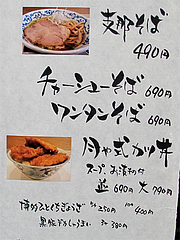 支那そば
490円
チャーシューそば 690円
ワンタンそば 690円
月や式カツ丼
スープ、お漬物付
並 690円 大 790円
250円 400円
380円